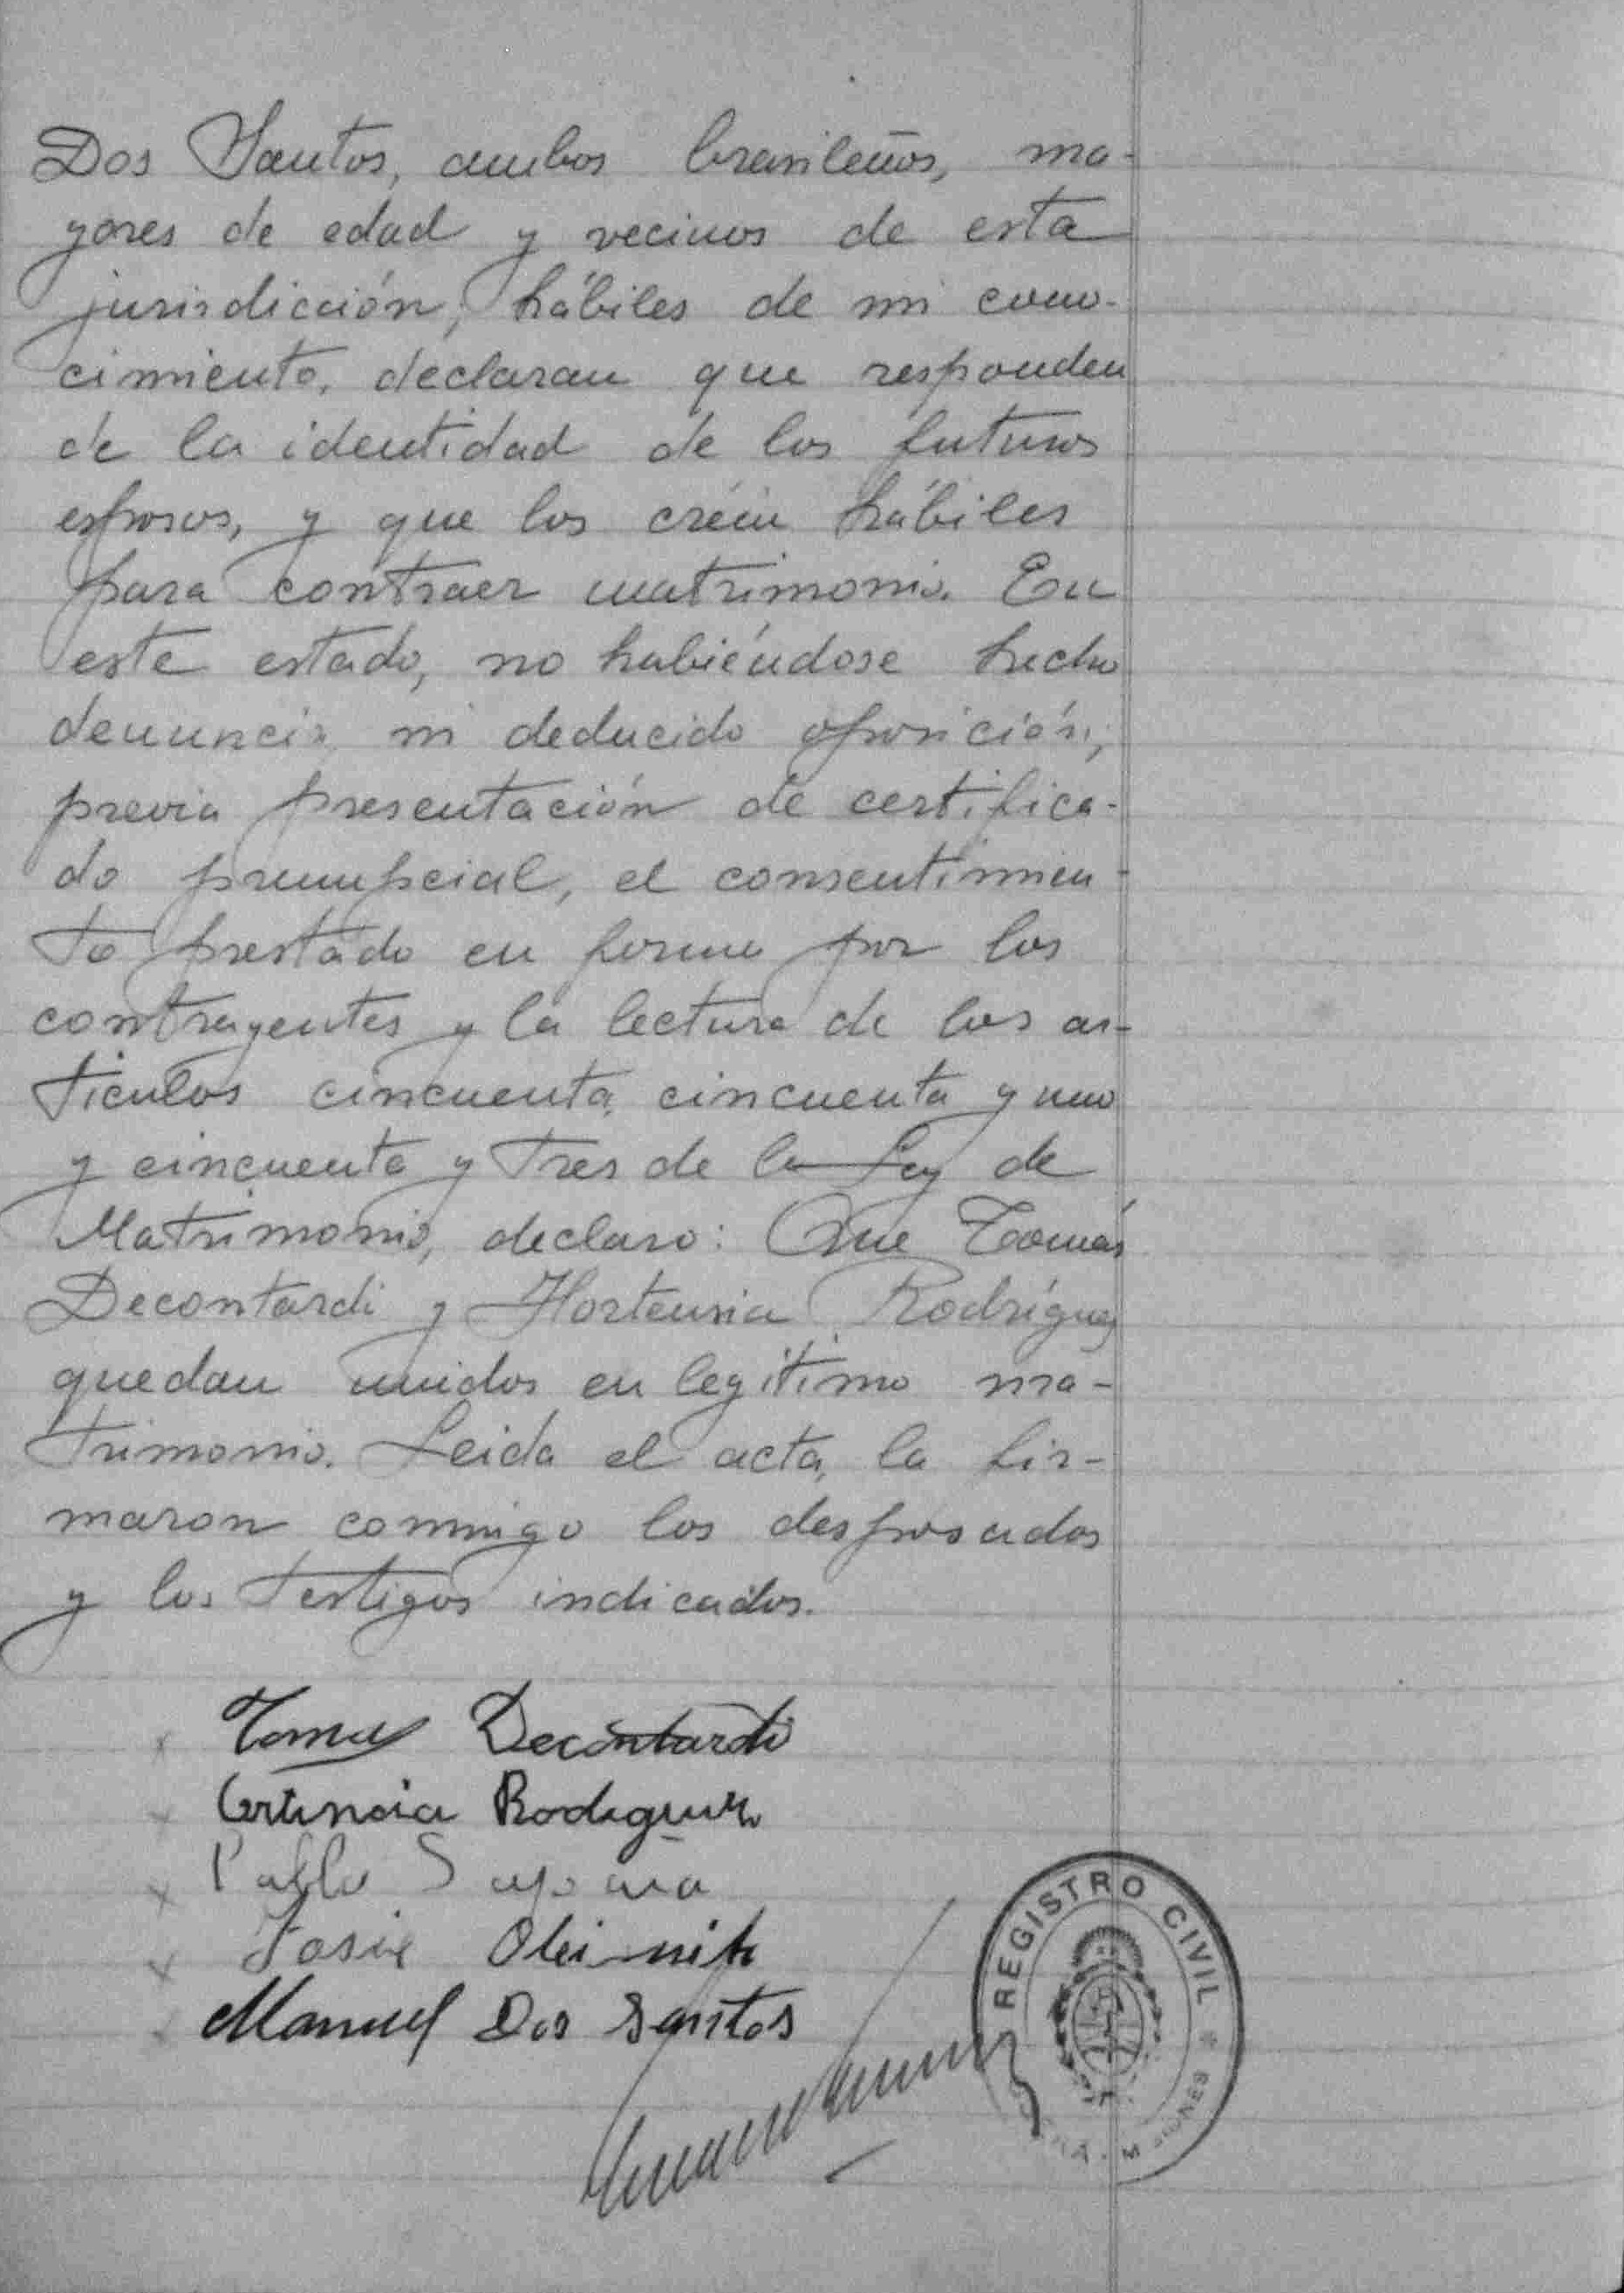 Dos Santos, ambos brasileños, ma-
yores de edad y vecinos de esta
jurisdicción, hábiles de mi cono-
cimiento, declaran que responden
de la identidad de los futuros
esposos, y que los créen hábiles
para contraer matrimonio. En
este estado, no habiéndose hecho
denuncia ni deducido oposición,
previa presentación de certifica-
do prenupcial, el consentimien-
to prestado en forma por los
contrayentes y la lectura de los ar-
tículos cincuenta, cincuenta y uno
y cincuenta y tres de la Ley de
Matrimonio, declaro: Que Tomás
Decontardi y Hortensia Rodríguez
quedan unidos en legítimo ma-
trimonio. Leida el acta, la fir-
maron conmigo los desposados
y los testigos indicados.
Tomas Decontardi
Rodriguez
Pablo
Oleinik
Manuel Dos Santos
REGISTRO CIVIL
MISIONES